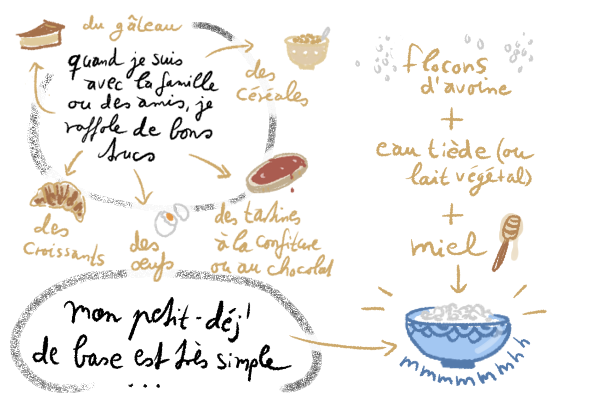 du gâteau
quand je suis
avec la famille
ou des amis, je
raffole de bons
trucs
des
céréales
des
croissants
des
œufs
des tartines
à la confiture
ou au chocolat
mon petit-déj'
de base est très simple
...
flocons
d'avoine
+
eau tiède (ou
lait végétal)
+
miel
mmmmmmhh